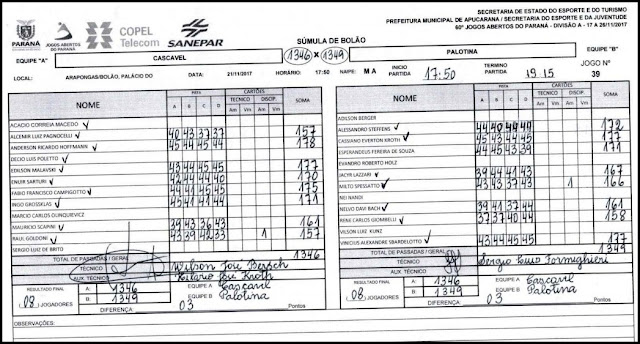 SECRETARIA DE ESTADO DO ESPORTE E DO TURISMO
PREFEITURA MUNICIPAL DE APUCARANA / SECRETARIA DO ESPORTE E DA JUVENTUDE
60º JOGOS ABERTOS DO PARANÁ - DIVISÃO A - 17 A 26/11/2017
PARANÁ
JOGOS ABERTOS DO PARANÁ
COPEL Telecom
SANEPAR
SÚMULA DE BOLÃO
EQUIPE "A" CASCAVEL 1346 X 1349 PALOTINA EQUIPE "B"
LOCAL: ARAPONGAS/BOLÃO, PALÁCIO DO DATA: 21/11/2017 HORÁRIO: 17:50 NAIPE: M A INICIO PARTIDA 17:50 TERMINO PARTIDA 19 15 JOGO Nº 39
NOME PISTA A B C D CARTÕES TÉCNICO Am Vm DISCIP. Am Vm SOMA
ACACIO CORREIA MACEDO
ALCENIR LUIZ PAGNOCELLI 40 43 37 37 157
ANDERSON RICARDO HOFFMANN 45 44 45 44 178
DECIO LUIS POLETTO
EDILSON MALAVSKI 43 44 45 45 177
ENOIR SARTURI 42 44 44 40 170
FABIO FRANCISCO CAMPIGOTTO 44 45 175
INGO GROSSKLAS 45 41 41 44 171
MARCIO CARLOS OUINQUEVICZ
MAURICIO SCAPINI 39 43 36 43 161
RAUL GOLDONI 43 39 42 33 1 157
SERGIO LUIZ DE BRITO
TOTAL DE PASSADAS / GERAL 1346
TÉCNICO Wilson José Bersch
AUX. TÉCNICO Hilario José Kroth
RESULTADO FINAL A: 1346 EQUIPE A Cascavel
(08) JOGADORES B: 1349 EQUIPE B Palotina
DIFERENÇA: 03 Pontos
NOME PISTA A B C D CARTÕES TÉCNICO Am Vm DISCIP. Am Vm SOMA
ADILSON BERGER
ALESSANDRO STEFFENS 172
CASSIANO EVERTON KROTH 45 43 44 45 177
ESPERANDEUS FERREIRA DE SOUZA 44 45 43 39 171
EVANDRO ROBERTO HOLZ
JACYR LAZZARI 39 44 41 43 167
MILTO SPESSATTO 43 43 37 43 1 166
NEI NANDI
NELVO DAVI BACH 39 41 37 44 161
RENE CARLOS GIOMBELLI 37 37 40 44 158
VILSON LUIZ KUNZ
VINICIUS ALEXANDRE SBARDELOTTO 43 44 45 45 177
TOTAL DE PASSADAS / GERAL 1349
TÉCNICO Sergio Luis Formighieri
AUX. TÉCNICO
RESULTADO FINAL A: 1346 EQUIPE A Cascavel
(08) JOGADORES B: 1349 EQUIPE B Palotina
DIFERENÇA: 03 Pontos
OBSERVAÇÕES: